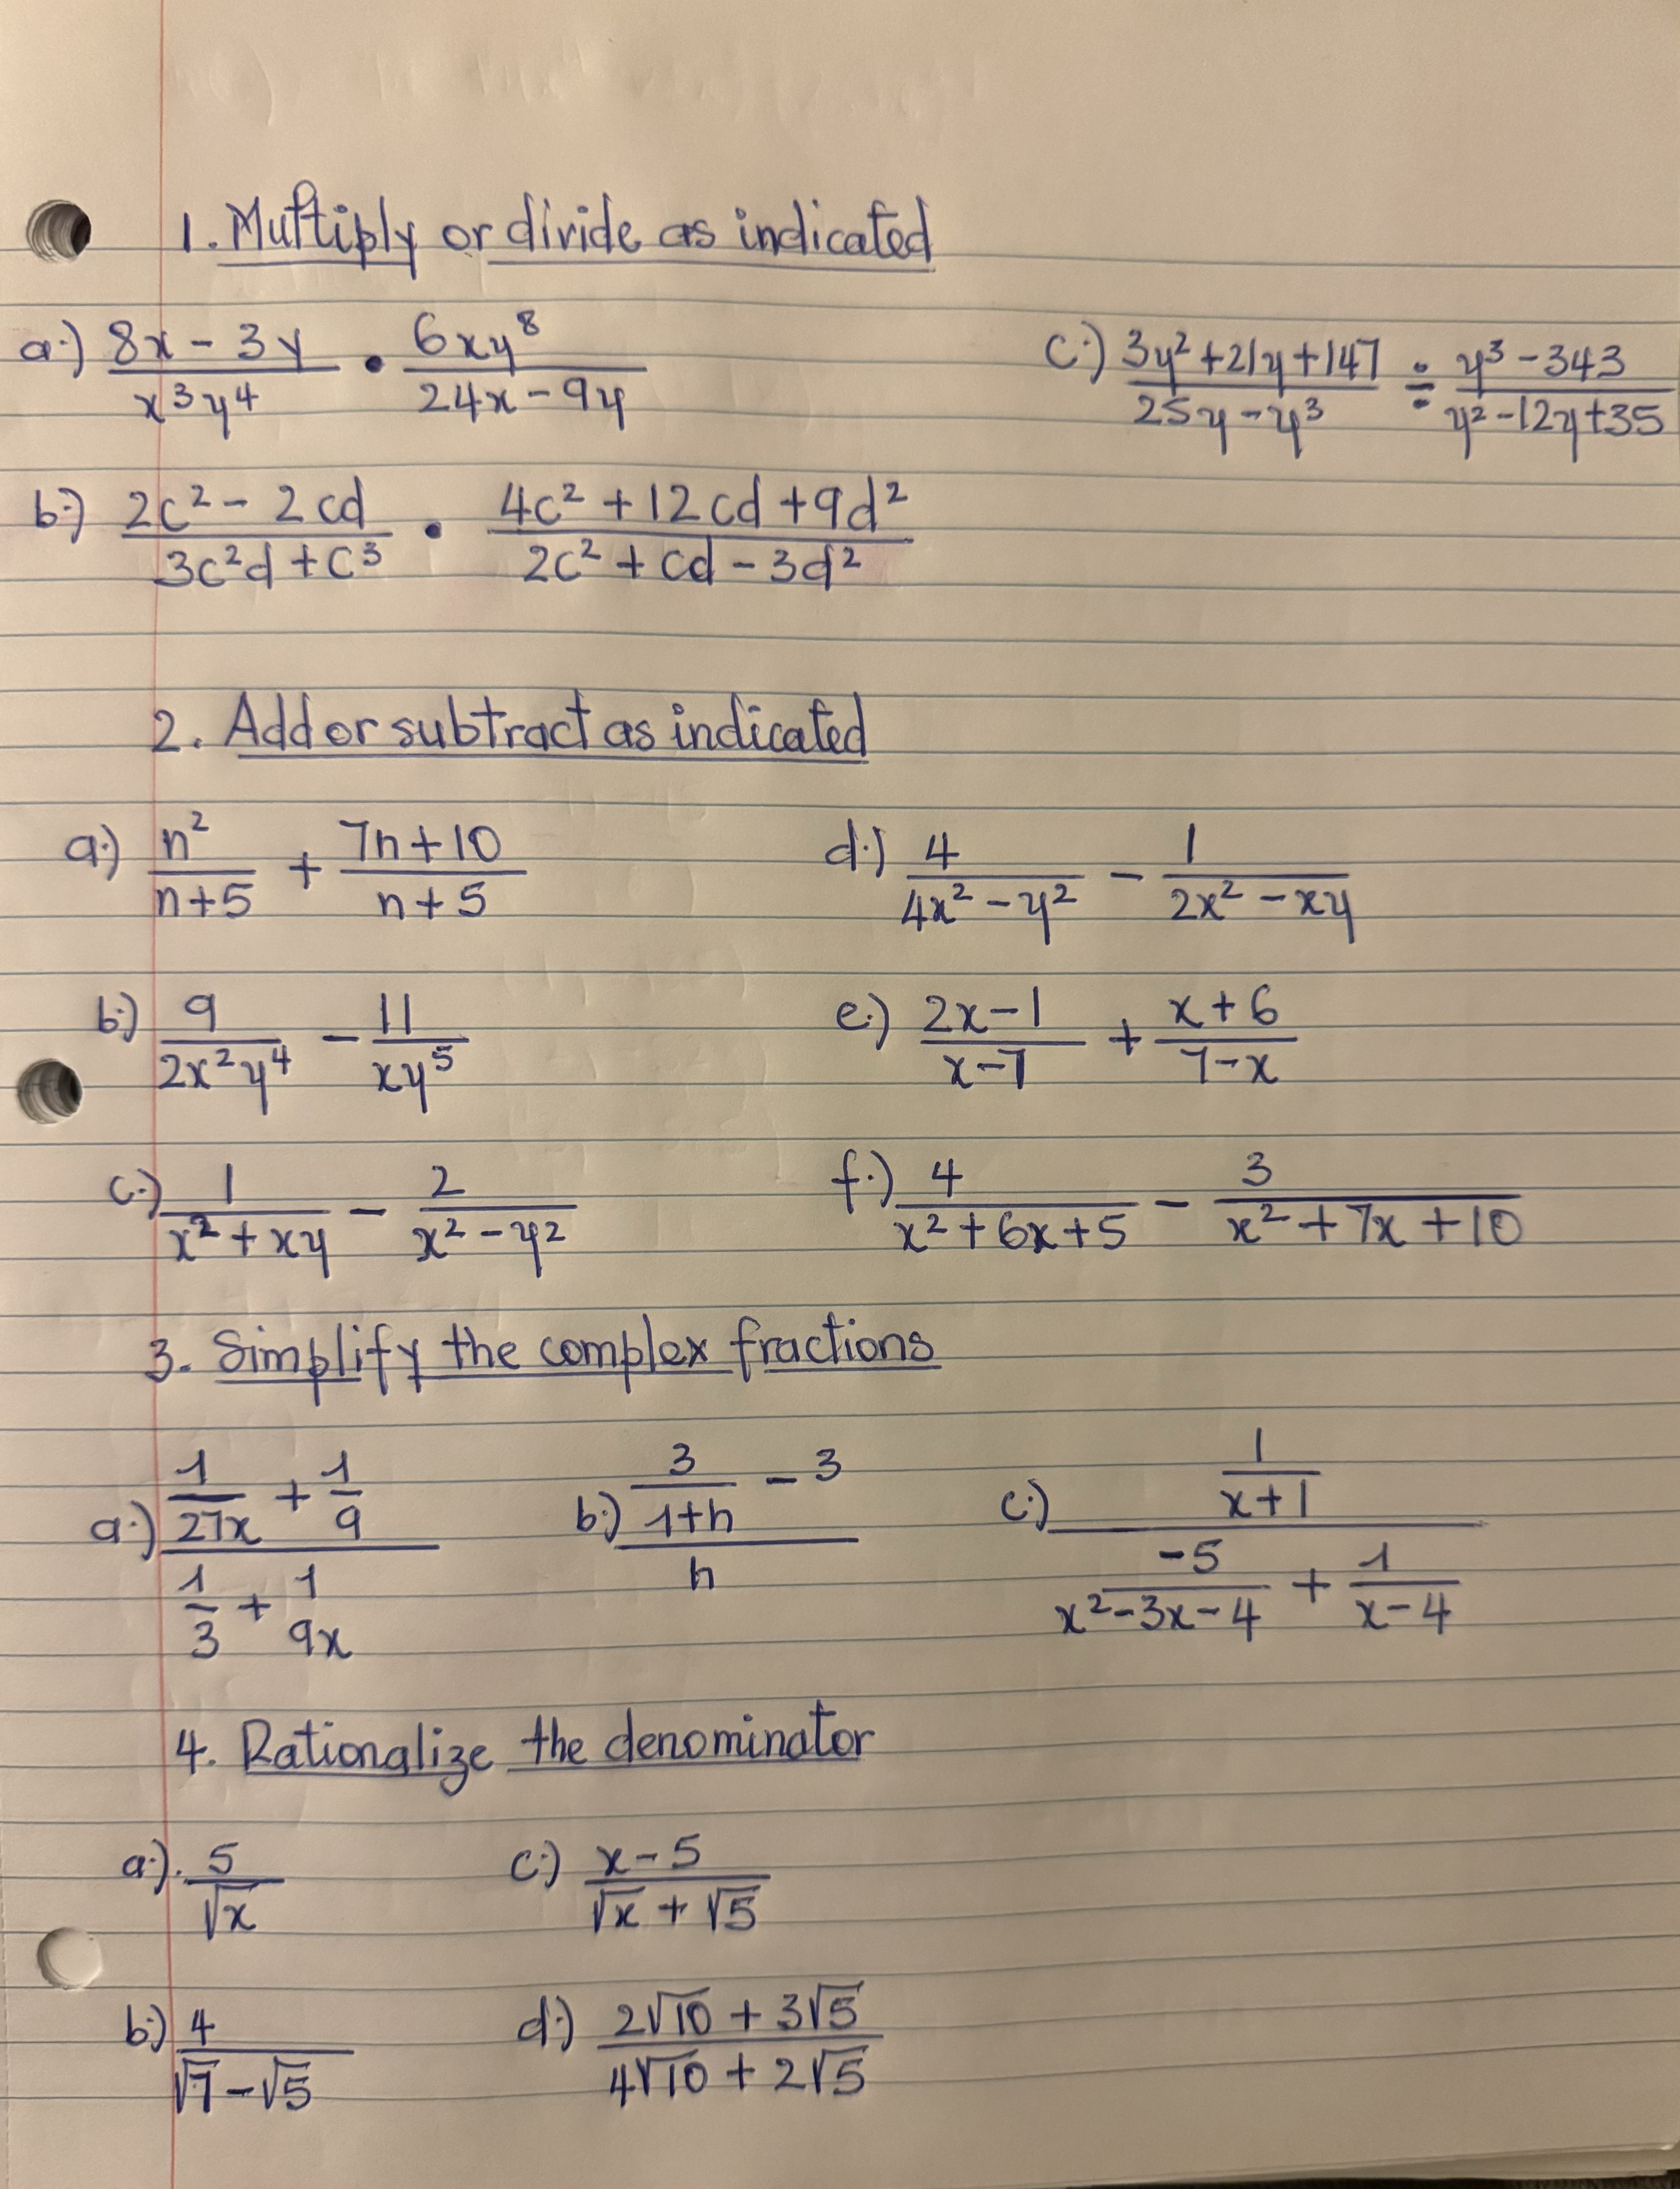 1. Multiply or divide as indicated
a.) (8x - 3y)/(x³y⁴) • (6xy⁸)/(24x - 9y)
c.) (3y² + 21y + 147)/(25y - y³) ÷ (y³ - 343)/(y² - 12y + 35)
b.) (2c² - 2cd)/(3c²d + c³) • (4c² + 12cd + 9d²)/(2c² + cd - 3d²)
2. Add or subtract as indicated
a.) n²/(n+5) + (7n+10)/(n+5)
d.) 4/(4x² - y²) - 1/(2x² - xy)
b.) 9/(2x²y⁴) - 11/(xy⁵)
e.) (2x-1)/(x-7) + (x+6)/(7-x)
c.) 1/(x² + xy) - 2/(x² - y²)
f.) 4/(x² + 6x + 5) - 3/(x² + 7x + 10)
3. Simplify the complex fractions
a.) (1/(27x) + 1/9)/(1/3 + 1/(9x))
b.) (3/(1+h) - 3)/h
c.) (1/(x+1))/(-5/(x² - 3x - 4) + 1/(x-4))
4. Rationalize the denominator
a.) 5/√x
c.) (x-5)/(√x + √5)
b.) 4/(√7 - √5)
d.) (2√10 + 3√5)/(4√10 + 2√5)